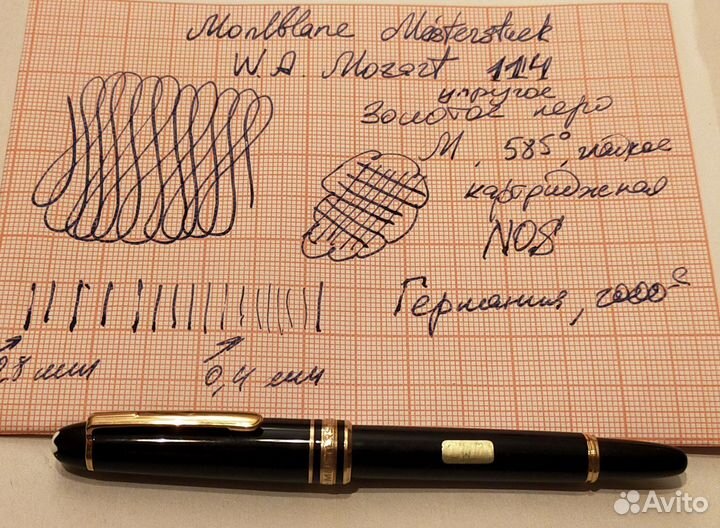 Montblanc Meisterstuck
W.A. Mozart 114
упругое
Золотое перо
M, 585°, гладкое
картриджная
NOS
Германия, 2000-е
0,4 мм
Avito